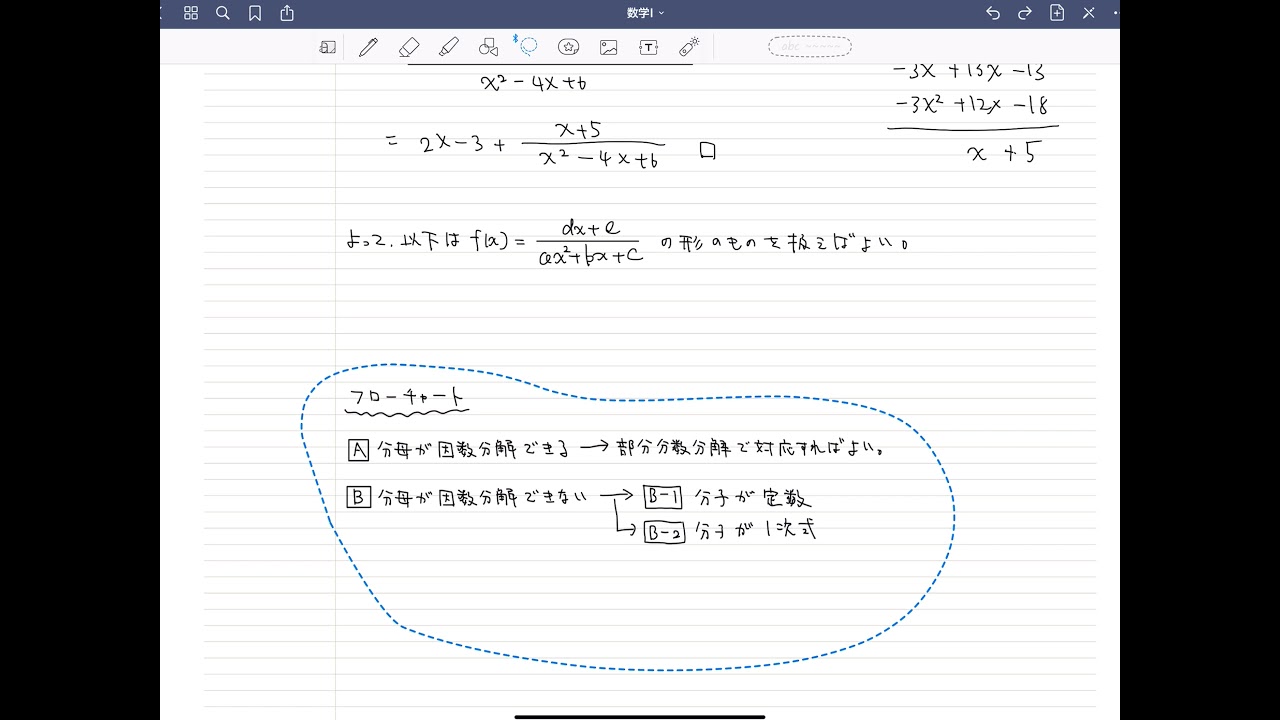 数学I
abc
x² - 4x + 6
-3x + 13x - 13
-3x² + 12x - 18
x + 5
= 2x - 3 + (x+5)/(x² - 4x + 6) □
よって、以下は f(x) = (dx+e)/(ax²+bx+c) の形のものを扱えばよい。
フローチャート
A 分母が因数分解できる → 部分分数分解で対応すればよい。
B 分母が因数分解できない → B-1 分子が定数
→ B-2 分子が1次式